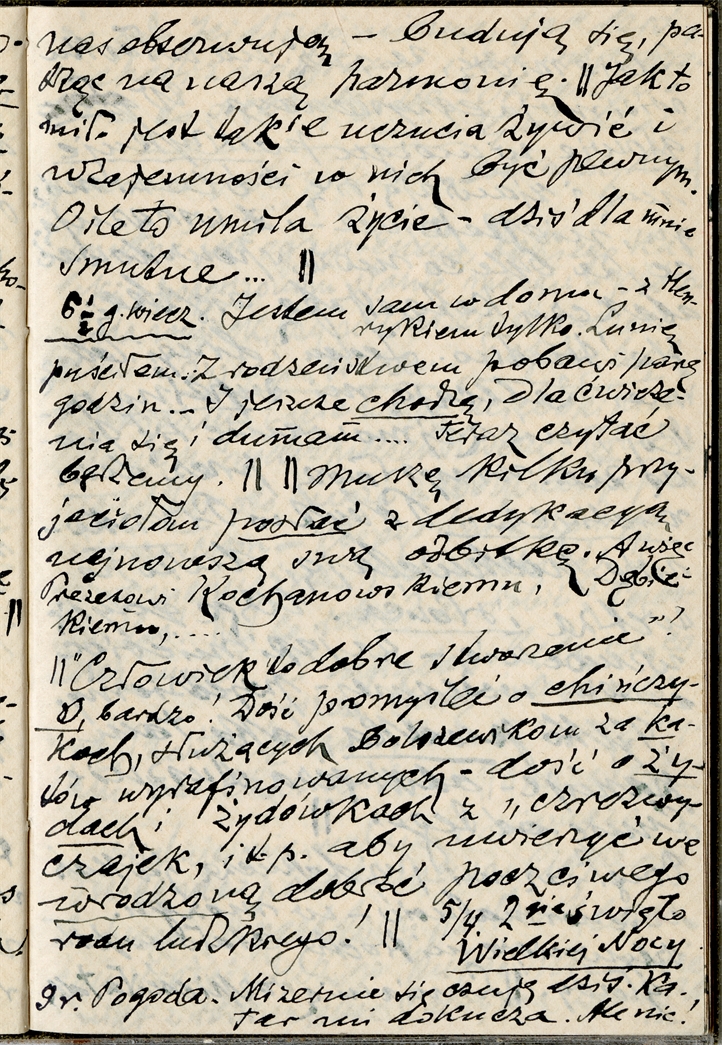 nas obserwują – budują się, pa-
trząc na naszą harmonię. || Jak to
miło jest takie uczucia żywić i
wzajemności w nich być pewnym.
O ile to umila życie – dziś dla mnie
smutne... ||
6½ g. wiecz. Jestem sam w domu – z Hen-
rykiem tylko. Lunię
puściłam. Z rodzeństwem pobawi parę
godzin... I jeszcze chodzę, dla ćwicze-
nia się i dumam.... Teraz czytać
będziemy. || || Muszę kilku przy-
jaciołom posłać z dedykacyą
najnowszą swą odbitkę. A więc
Prezesowi Kochanowskiemu,
kiemu, ....
||"Człowiek to dobre stworzenie"!
O, bardzo! Dość pomyśleć o chińczy-
kach, służących bolszewikom za ka-
tów wyrafinowanych – dość o ży-
dach i żydówkach z „czrezwy-
czajek, i t.p. aby uwierzyć we
wrodzoną dobroć poczciwego
rodu ludzkiego! || 5/4 2gie święto
Wielkiej Nocy
9 r. Pogoda. Mizernie się czuję dziś. Ka-
tar mi dokucza. Ale nic!